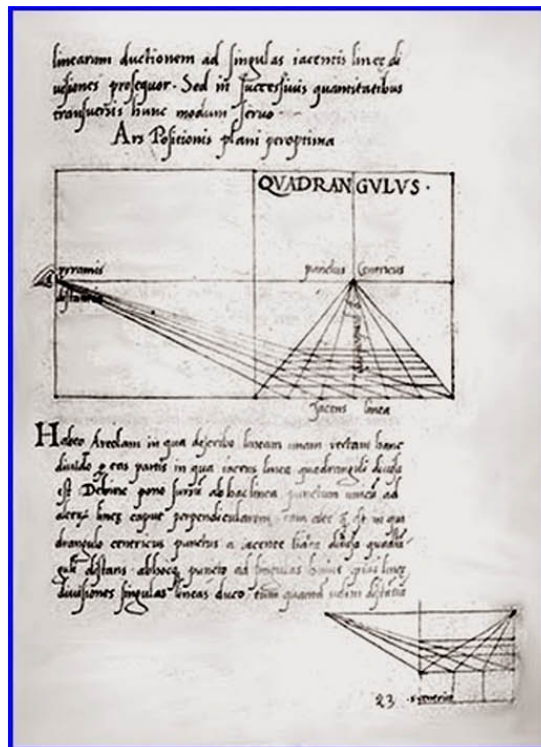 linearum ductionem ad singulas iacentis lineę di
uisiones prosequor. Sed in successiuis quantitatibus
transuersis hunc modum seruo
Ars Positionis plani peroptima
QVADRANGVLVS.
pyramis
punctus Centricus
distantia
Jacens linea
Habeo Areolam in qua describo lineam unam rectam hanc
diuido eas partis in qua iacens linea quadranguli diuisa
est Dehinc pono sursũ ab hac linea punctum unicũ ad
alterũ lineę caput perpendicularem in qua
drangulo centricus punctus a iacente diuisa
distans ab hocq puncto ad singulas huius lineę
diuisiones singulas lineas duco tum
23